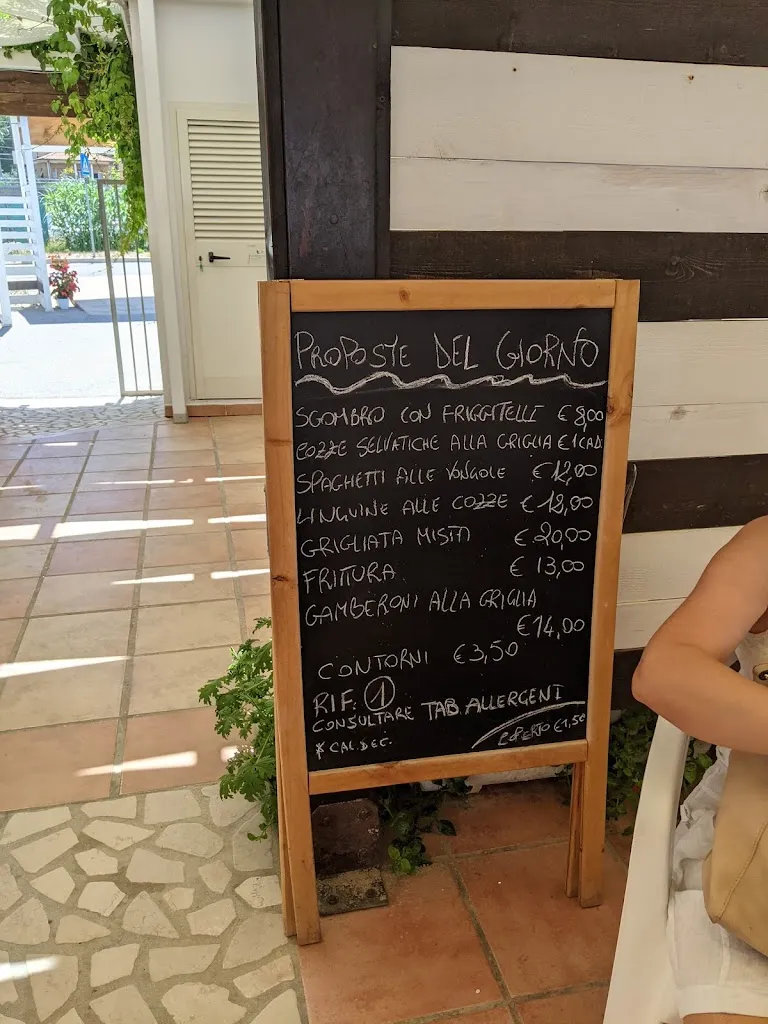 PROPOSTE DEL GIORNO
SGOMBRO CON FRIGGITELLI € 8,00
COZZE SELVATICHE ALLA GRIGLIA € 1 CAD
SPAGHETTI ALLE VONGOLE € 12,00
LINGUINE ALLE COZZE € 12,00
GRIGLIATA MISTA € 20,00
FRITTURA € 13,00
GAMBERONI ALLA GRIGLIA
€ 14,00
CONTORNI € 3,50
RIF: 1
CONSULTARE TAB. ALLERGENI
COPERTO € 1,50